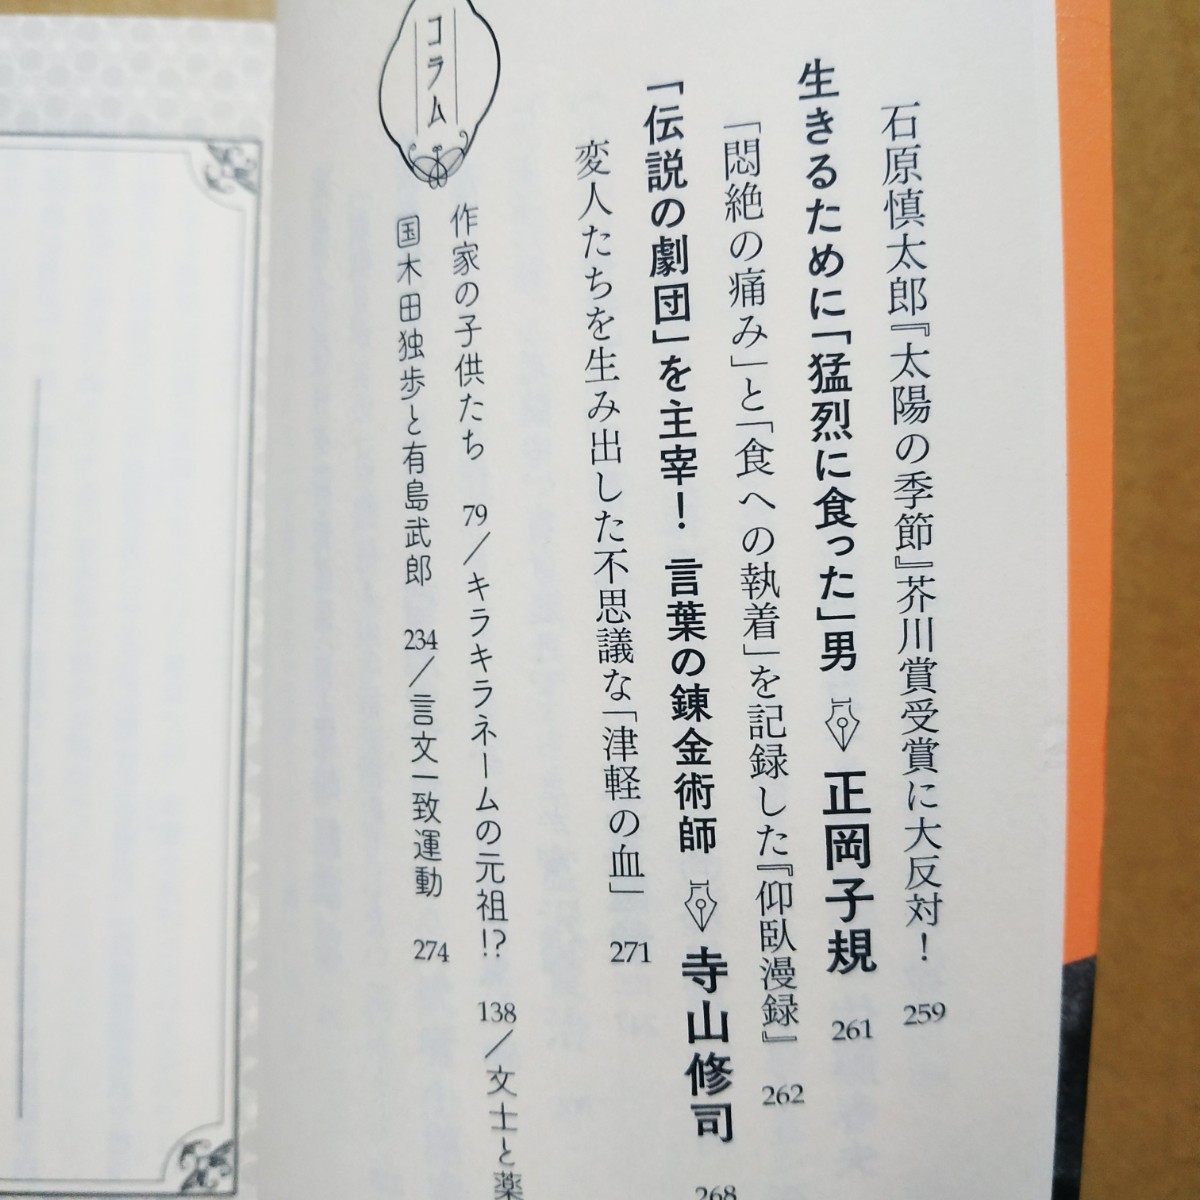 石原慎太郎『太陽の季節』芥川賞受賞に大反対！ 259
生きるために「猛烈に食った」男 正岡子規 261
「悶絶の痛み」と「食への執着」を記録した『仰臥漫録』 262
「伝説の劇団」を主宰！ 言葉の錬金術師 寺山修司 268
変人たちを生み出した不思議な「津軽の血」 271
コラム
作家の子供たち 79／キラキラネームの元祖!? 138／文士と薬
国木田独歩と有島武郎 234／言文一致運動 274